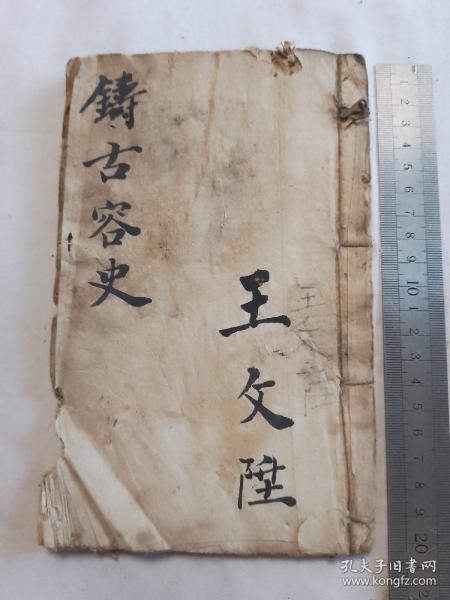 鑄古容史
王文陞
王文陞
1 2 3 4 5 6 7 8 9 10 1 2 3 4 5 6 7 8 9 20
孔夫子旧书网
www.kongfz.com